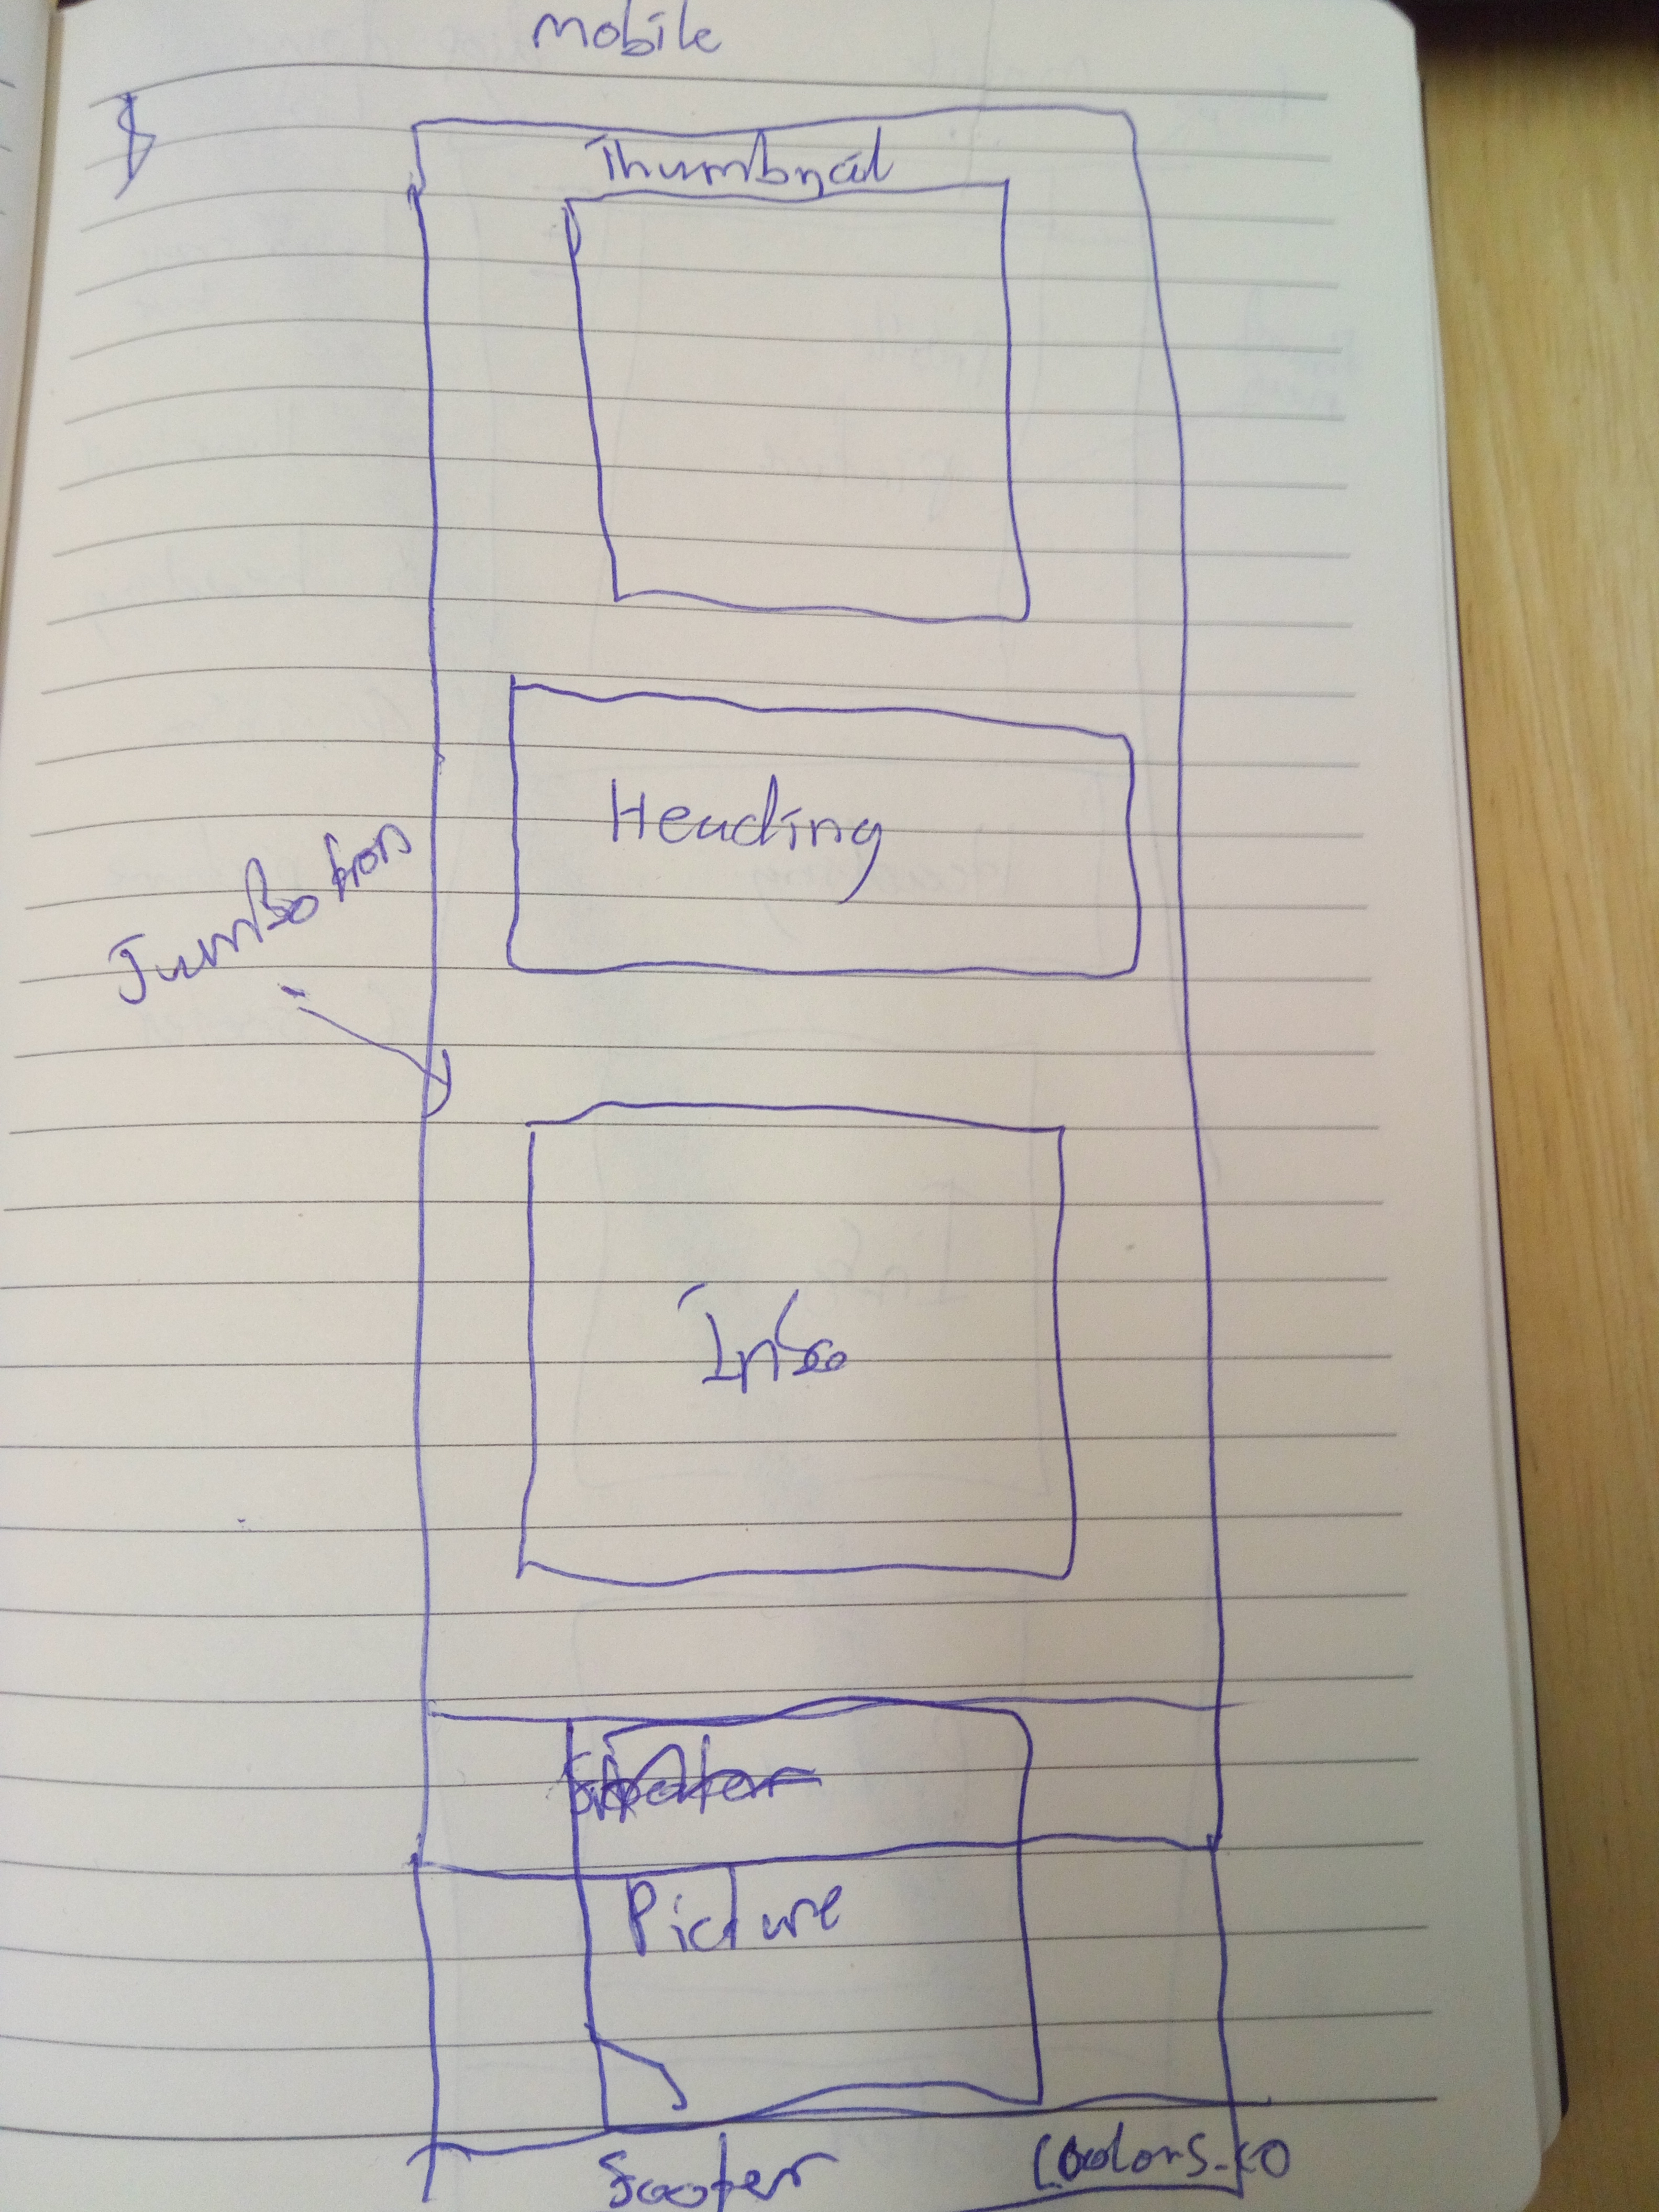 mobile
Thumbnail
Heading
JumBotron
Info
Picture
footer
Coolors.co